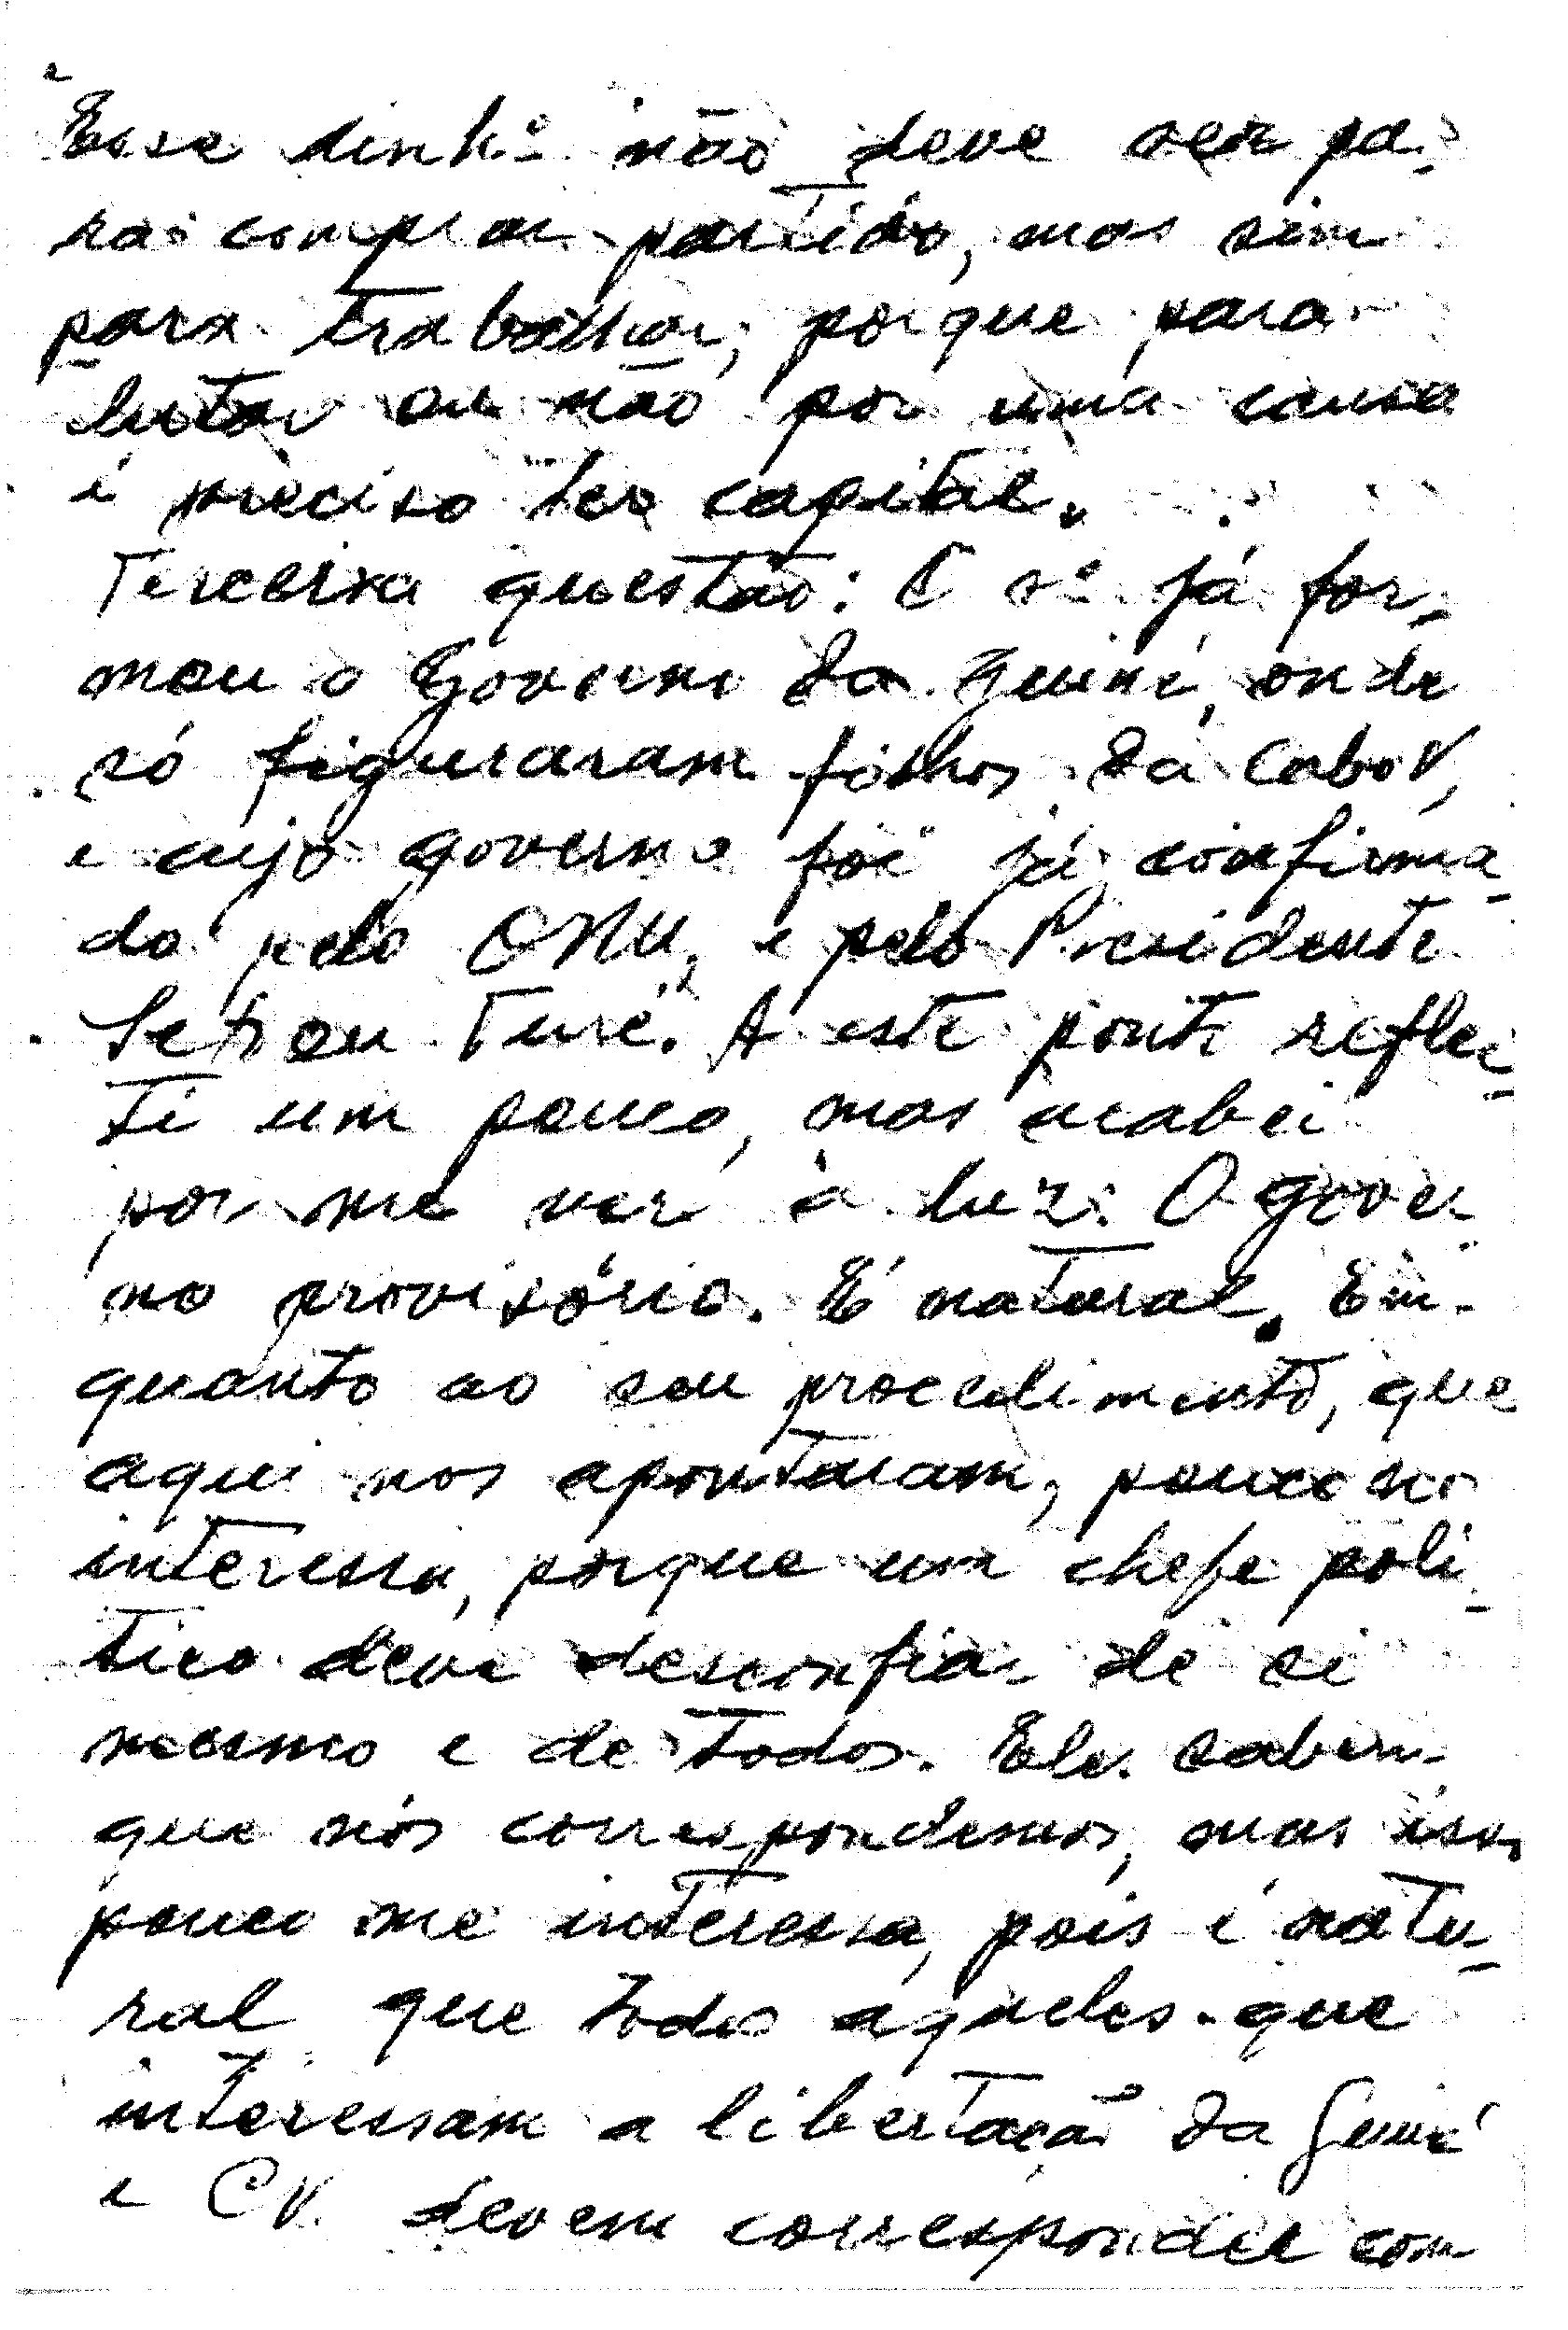 Esse dinhº não deve ser pa-
ra comprar partido, mas sim
para trabalhar, porque para
lutar ou não por uma causa
é preciso ter capital.
Terceira questão: O sº já for-
mou o Governo da Guiné, onde
só figuraram filhos da Cabo V,
e cujo governo foi já confirma-
do pelo ONU, e pelo Presidente
Sekou Turé. A este ponto reflec-
ti um pouco, mas acabei
por me ver à luz: O gover-
no provisório. É natural. En-
quanto ao seu procedimento, que
aqui nos apontaram, pouco me
interessa, porque um chefe poli-
tico deve desconfiar de si
mesmo e de todos. Eles sabem
que nós correspondemos, mas isso
pouco me interessa, pois é natu-
ral que todos aqueles que
interessam a libertação da Guiné
e CV. devem corresponder com